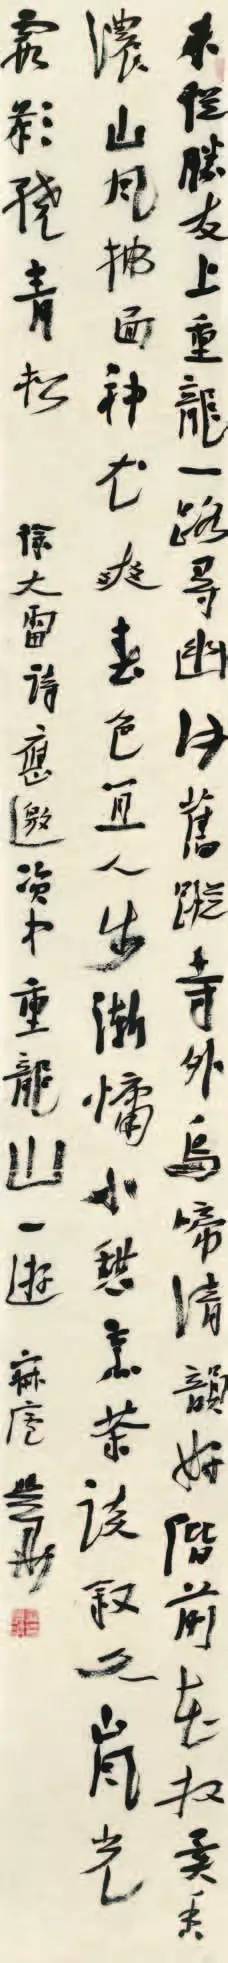 来從勝友上重龍一路尋幽訪舊蹤寺外鳥啼清韻好階前花放異香
濃山風拂面神尤爽春色宜人步漸慵小憩煮茶談叙久嵐光
霞彩繞青松
徐大雷詩應邀資中重龍山一遊 麻庵